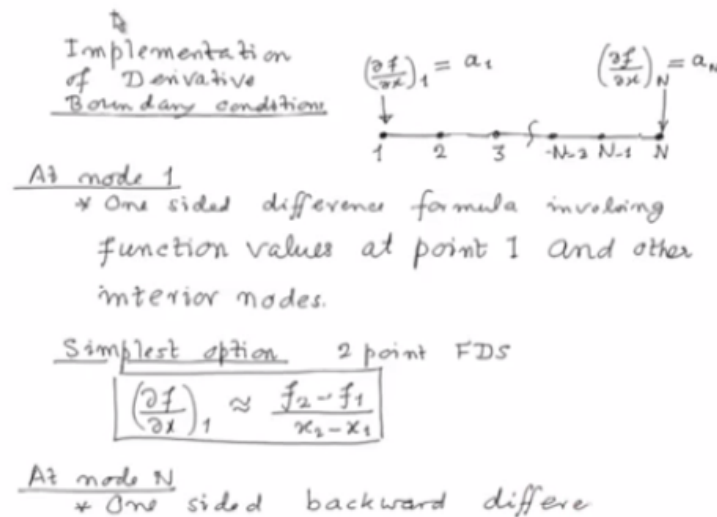 Implementation
of Derivative
Boundary conditions
(∂f/∂x)₁ = a₁
(∂f/∂x)_N = a_N
1 2 3 N-2 N-1 N
At node 1
* One sided difference formula involving
function values at point 1 and other
interior nodes.
Simplest option 2 point FDS
(∂f/∂x)₁ ≈ (f₂-f₁)/(x₂-x₁)
At node N
* One sided backward differe